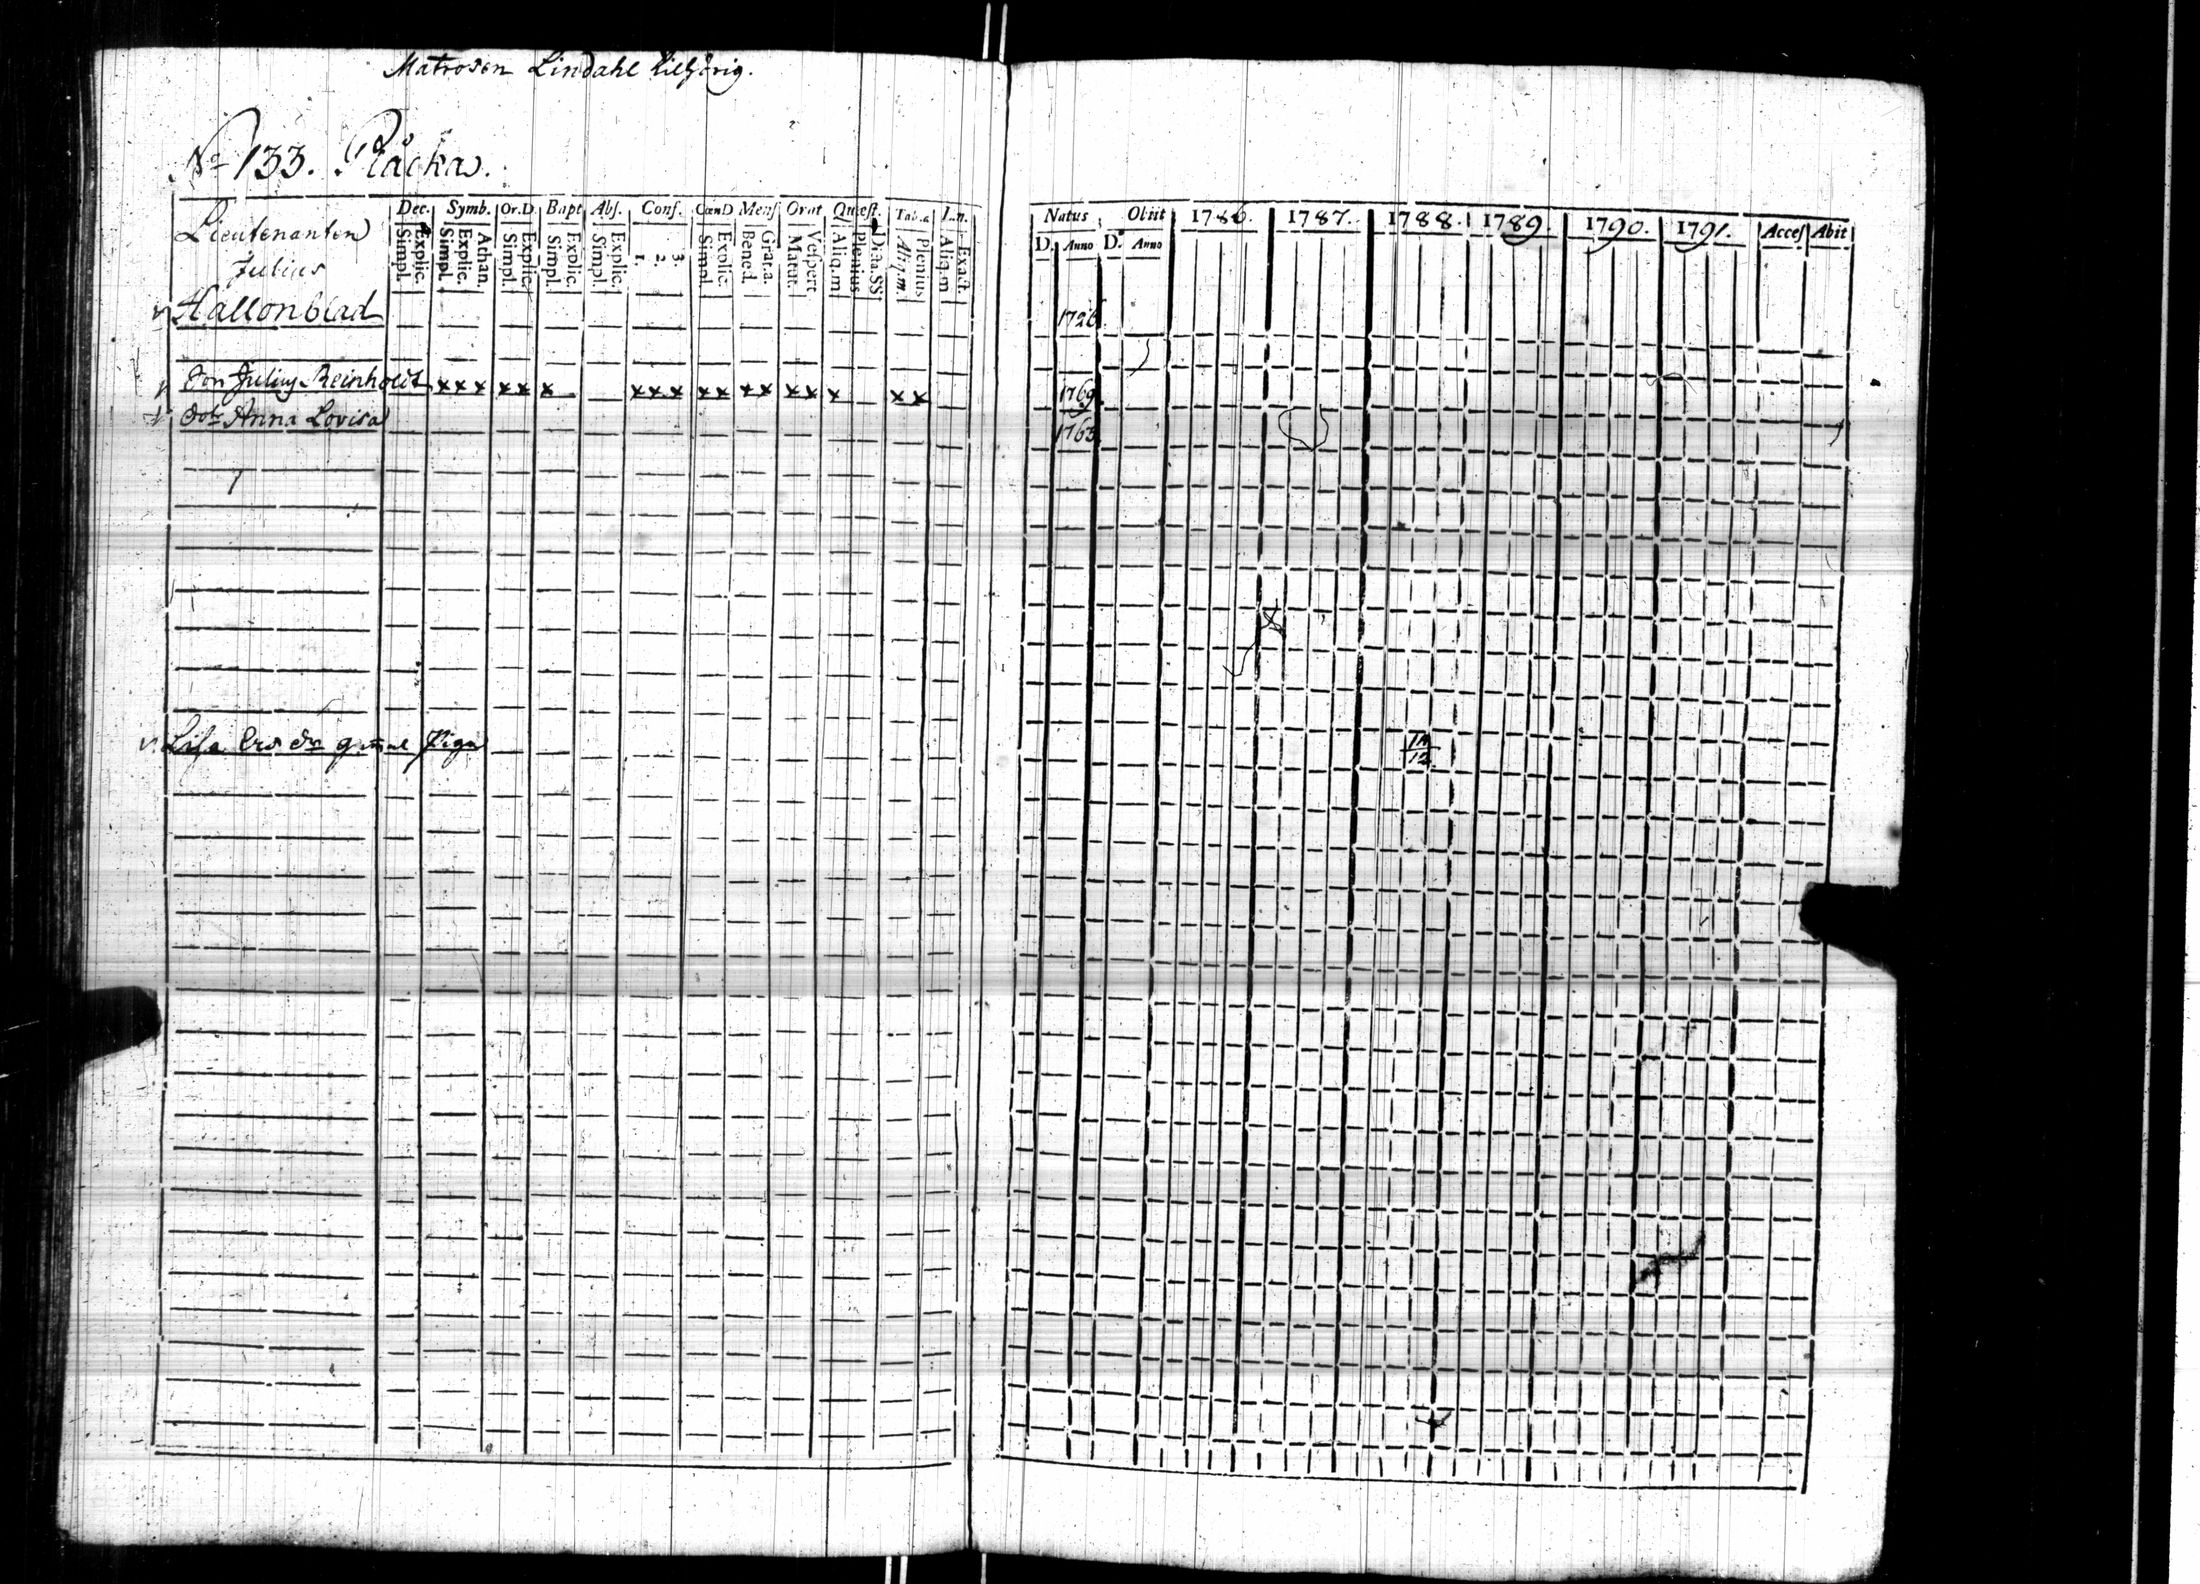 Matrosen Lindahl tilhörig.
No 133. Råcka.
Dec. Symb. Or.D. Bapt Abs. Conf. CœnD Mens Orat Quæst. Tab.œ
Simpl. Explic. Simpl. Explic. Athan. Simpl. Explic. Simpl. Explic. Simpl. Explic. 1. 2. 3. Simpl. Explic. Bened. Grat.a. Matut. Vespert. Aliq.m Plenius Dicta.SS Aliq.m. Plenius Aliq.m Exact.
Natus Obiit 1786. 1787. 1788. 1789. 1790. 1791. Acces Abit
D. Anno D. Anno
Lieutenanten
Julius
Hallonblad 1726.
Son Julius Reinholdt x x x x x x x x x x x x x x x x x x 1769
dotr Anna Lovisa 1763
Lisa Ers dr gammal Piga
12